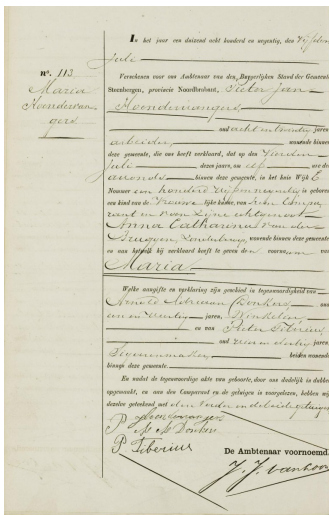 In het jaar een duizend acht honderd en negentig, den vijfden
Juli
Verscheen voor ons Ambtenaar van den Burgerlijken Stand der Gemeente
Steenbergen, provincie Noordbrabant, Pieter Jan
Hoendervangers
oud acht en twintig jaren
arbeider, wonende binnen
deze gemeente, die ons heeft verklaard, dat op den Vierden
Juli dezes jaars, ten elf ure des
avonds binnen deze gemeente, in het huis Wijk E
Nummer een honderd vijf en twintig is geboren
een kind van de Vrouwelijke kunne, van hem Compa
rant en van zijne echtgenoot
Anna Catharina van der
Bruggen, wonende binnen deze gemeente
en aan hetwelk hij verklaard heeft te geven den voornaam van
Maria
Welke aangifte en verklaring zijn geschied in tegenwoordigheid van
Adriaan Donkers oud
een en veertig jaren, Winkelier
en van Pieter Tiberius
oud vier en dertig jaren,
Sigarenmaker, beiden wonende
binnen deze gemeente
En nadat de tegenwoordige akte van geboorte, door ons dadelijk in dubbel
opgemaakt, en aan den Comparant en de getuigen is voorgelezen, hebben wij
dezelve geteekend, met den Vader en de beide getuigen
P J Hoendervangers
Donkers
P Tiberius
De Ambtenaar voornoemd.
J. J. van Loon
n°. 113
Maria
Hoendervan
gers